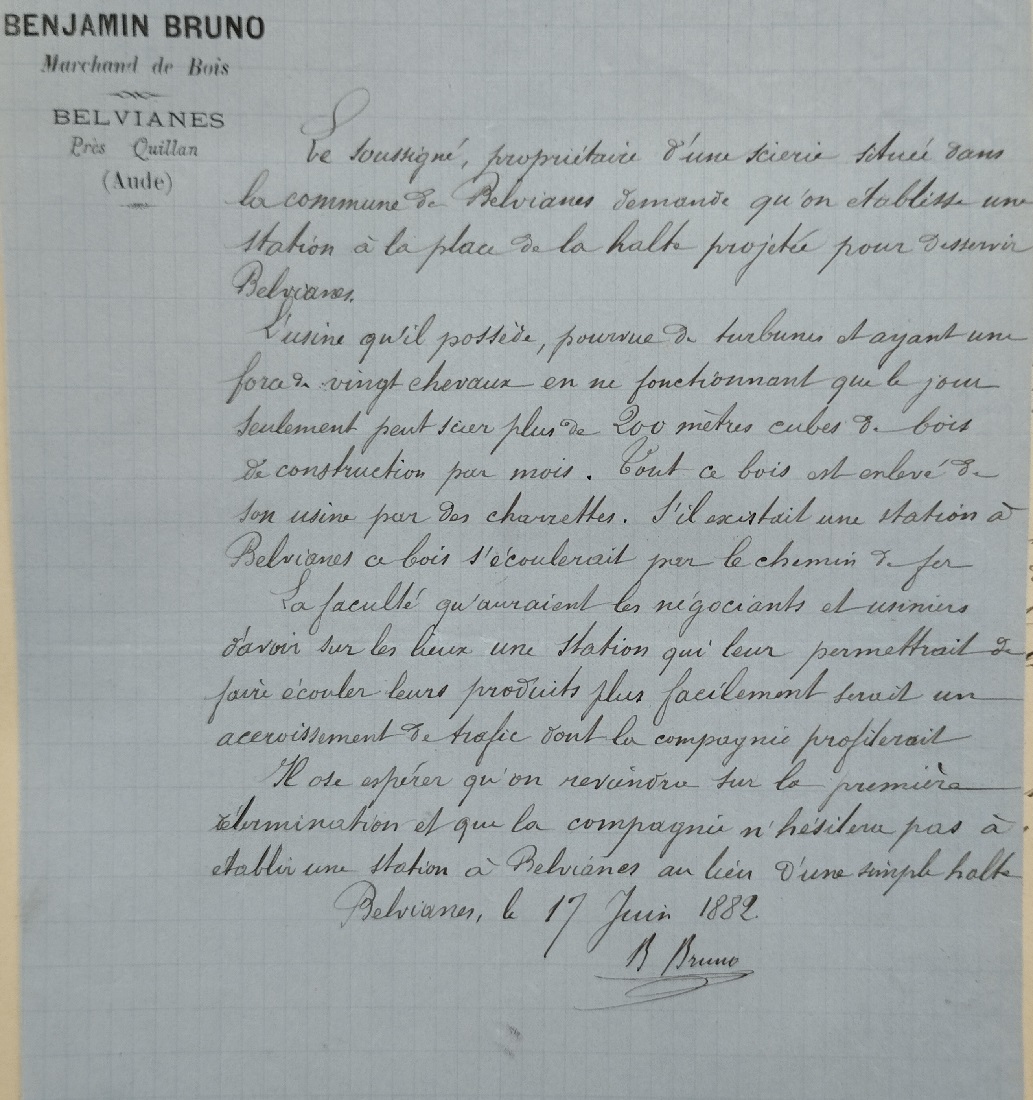 BENJAMIN BRUNO
Marchand de Bois
BELVIANES
Près Quillan
(Aude)
Le soussigné, propriétaire d'une scierie située dans
la commune de Belvianes demande qu'on établisse une
station à la place de la halte projetée pour desservir
Belvianes.
L'usine qu'il possède, pourvue de turbines et ayant une
force de vingt chevaux en ne fonctionnant que le jour
seulement peut scier plus de 200 mètres cubes de bois
de construction par mois. Tout ce bois est enlevé de
son usine par des charrettes. S'il existait une station à
Belvianes ce bois s'écoulerait par le chemin de fer
La faculté qu'auraient les négociants et usiniers
d'avoir sur les lieux une station qui leur permettrait de
faire écouler leurs produits plus facilement serait un
accroissement de trafic dont la compagnie profiterait
Il ose espérer qu'on reviendra sur la première
détermination et que la compagnie n'hésitera pas à
établir une station à Belvianes au lieu d'une simple halte
Belvianes, le 17 Juin 1882.
B Bruno